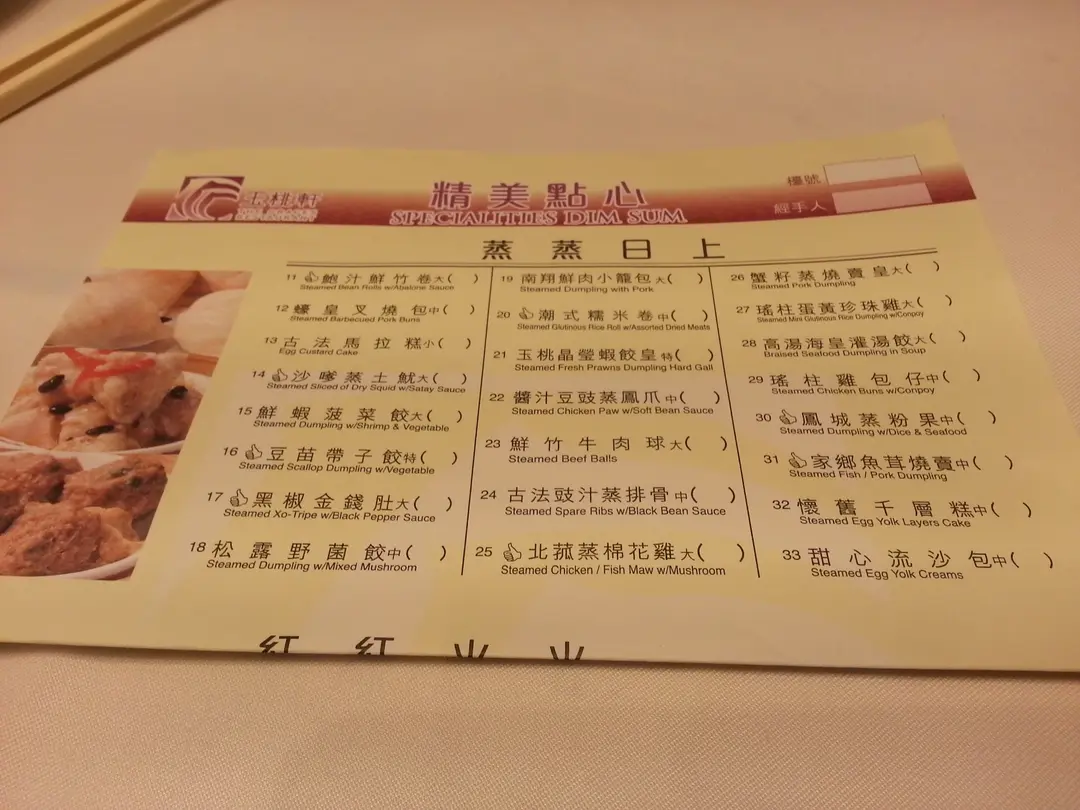 玉桃軒
精美點心
SPECIALITIES DIM SUM
檯號
經手人
蒸蒸日上
11 鮑汁鮮竹卷大( )
Steamed Bean Rolls w/Abalone Sauce
12 蠔皇叉燒包中( )
Steamed Barbecued Pork Buns
13 古法馬拉糕小( )
Egg Custard Cake
14 沙嗲蒸土魷大( )
Steamed Sliced of Dry Squid w/Satay Sauce
15 鮮蝦菠菜餃大( )
Steamed Dumpling w/Shrimp & Vegetable
16 豆苗帶子餃特( )
Steamed Scallop Dumpling w/Vegetable
17 黑椒金錢肚大( )
Steamed Xo-Tripe w/Black Pepper Sauce
18 松露野菌餃中( )
Steamed Dumpling w/Mixed Mushroom
19 南翔鮮肉小籠包大( )
Steamed Dumpling with Pork
20 潮式糯米卷中( )
Steamed Glutinous Rice Roll w/Assorted Dried Meats
21 玉桃晶瑩蝦餃皇特( )
Steamed Fresh Prawns Dumpling Hard Gall
22 醬汁豆豉蒸鳳爪中( )
Steamed Chicken Paw w/Soft Bean Sauce
23 鮮竹牛肉球大( )
Steamed Beef Balls
24 古法豉汁蒸排骨中( )
Steamed Spare Ribs w/Black Bean Sauce
25 北菰蒸棉花雞大( )
Steamed Chicken / Fish Maw w/Mushroom
26 蟹籽蒸燒賣皇大( )
Steamed Pork Dumpling
27 瑤柱蛋黃珍珠雞大( )
Steamed Mini Glutinous Rice Dumpling w/Conpoy
28 高湯海皇灌湯餃大( )
Braised Seafood Dumpling in Soup
29 瑤柱雞包仔中( )
Steamed Chicken Buns w/Conpoy
30 鳳城蒸粉果中( )
Steamed Dumpling w/Dice & Seafood
31 家鄉魚茸燒賣中( )
Steamed Fish / Pork Dumpling
32 懷舊千層糕中( )
Steamed Egg Yolk Layers Cake
33 甜心流沙包中( )
Steamed Egg Yolk Creams
紅紅